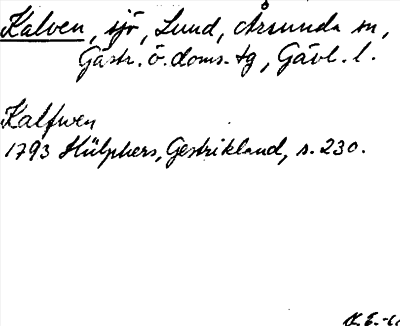 Kalven, sjö, Lund, Årsunda sn,
Gästr. ö. doms. tg, Gävl. l.
Kalfwen
1793 Hülphers, Gestrikland, s. 230.